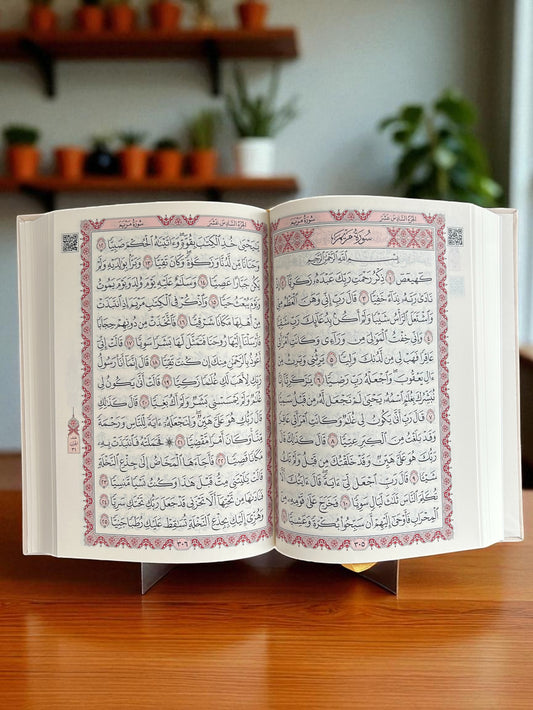 الجزء السادس عشر
سورة مريم
سُورَةُ مَرْيَمَ
بِسْمِ ٱللَّهِ ٱلرَّحْمَٰنِ ٱلرَّحِيمِ
كٓهيعٓصٓ ١ ذِكْرُ رَحْمَتِ رَبِّكَ عَبْدَهُۥ زَكَرِيَّآ ٢ إِذْ
نَادَىٰ رَبَّهُۥ نِدَآءً خَفِيًّا ٣ قَالَ رَبِّ إِنِّي وَهَنَ ٱلْعَظْمُ مِنِّي
وَٱشْتَعَلَ ٱلرَّأْسُ شَيْبًا وَلَمْ أَكُنۢ بِدُعَآئِكَ رَبِّ شَقِيًّا
٤ وَإِنِّي خِفْتُ ٱلْمَوَٰلِيَ مِن وَرَآءِي وَكَانَتِ ٱمْرَأَتِي
عَاقِرًا فَهَبْ لِي مِن لَّدُنكَ وَلِيًّا ٥ يَرِثُنِي وَيَرِثُ مِنْ
ءَالِ يَعْقُوبَ ۖ وَٱجْعَلْهُ رَبِّ رَضِيًّا ٦ يَٰزَكَرِيَّآ إِنَّا
نُبَشِّرُكَ بِغُلَٰمٍ ٱسْمُهُۥ يَحْيَىٰ لَمْ نَجْعَل لَّهُۥ مِن قَبْلُ سَمِيًّا
٧ قَالَ رَبِّ أَنَّىٰ يَكُونُ لِي غُلَٰمٌ وَكَانَتِ ٱمْرَأَتِي عَاقِرًا
وَقَدْ بَلَغْتُ مِنَ ٱلْكِبَرِ عِتِيًّا ٨ قَالَ كَذَٰلِكَ قَالَ
رَبُّكَ هُوَ عَلَيَّ هَيِّنٌ وَقَدْ خَلَقْتُكَ مِن قَبْلُ وَلَمْ تَكُ
شَيْـًٔا ٩ قَالَ رَبِّ ٱجْعَل لِّي ءَايَةً ۚ قَالَ ءَايَتُكَ أَلَّا
تُكَلِّمَ ٱلنَّاسَ ثَلَٰثَ لَيَالٍ سَوِيًّا ١٠ فَخَرَجَ عَلَىٰ قَوْمِهِۦ مِنَ
ٱلْمِحْرَابِ فَأَوْحَىٰٓ إِلَيْهِمْ أَن سَبِّحُوا۟ بُكْرَةً وَعَشِيًّا ١١
٣٠٥
الجزء السادس عشر
سورة مريم
يَٰيَحْيَىٰ خُذِ ٱلْكِتَٰبَ بِقُوَّةٍ ۖ وَءَاتَيْنَٰهُ ٱلْحُكْمَ صَبِيًّا ١٢
وَحَنَانًا مِّن لَّدُنَّا وَزَكَوٰةً ۖ وَكَانَ تَقِيًّا ١٣ وَبَرًّۢا بِوَٰلِدَيْهِ وَلَمْ
يَكُن جَبَّارًا عَصِيًّا ١٤ وَسَلَٰمٌ عَلَيْهِ يَوْمَ وُلِدَ وَيَوْمَ يَمُوتُ
وَيَوْمَ يُبْعَثُ حَيًّا ١٥ وَٱذْكُرْ فِي ٱلْكِتَٰبِ مَرْيَمَ إِذِ ٱنتَبَذَتْ
مِنْ أَهْلِهَا مَكَانًا شَرْقِيًّا ١٦ فَٱتَّخَذَتْ مِن دُونِهِمْ حِجَابًا
فَأَرْسَلْنَآ إِلَيْهَا رُوحَنَا فَتَمَثَّلَ لَهَا بَشَرًا سَوِيًّا ١٧ قَالَتْ إِنِّيٓ
أَعُوذُ بِٱلرَّحْمَٰنِ مِنكَ إِن كُنتَ تَقِيًّا ١٨ قَالَ إِنَّمَآ أَنَا۠ رَسُولُ
رَبِّكِ لِأَهَبَ لَكِ غُلَٰمًا زَكِيًّا ١٩ قَالَتْ أَنَّىٰ يَكُونُ لِي
غُلَٰمٌ وَلَمْ يَمْسَسْنِي بَشَرٌ وَلَمْ أَكُ بَغِيًّا ٢٠ قَالَ كَذَٰلِكِ
قَالَ رَبُّكِ هُوَ عَلَيَّ هَيِّنٌ ۖ وَلِنَجْعَلَهُۥٓ ءَايَةً لِّلنَّاسِ وَرَحْمَةً
مِّنَّا ۚ وَكَانَ أَمْرًا مَّقْضِيًّا ٢١ ۞ فَحَمَلَتْهُ فَٱنتَبَذَتْ بِهِۦ
مَكَانًا قَصِيًّا ٢٢ فَأَجَآءَهَا ٱلْمَخَاضُ إِلَىٰ جِذْعِ ٱلنَّخْلَةِ
قَالَتْ يَٰلَيْتَنِي مِتُّ قَبْلَ هَٰذَا وَكُنتُ نَسْيًا مَّنسِيًّا ٢٣
فَنَادَىٰهَا مِن تَحْتِهَآ أَلَّا تَحْزَنِي قَدْ جَعَلَ رَبُّكِ تَحْتَكِ سَرِيًّا ٢٤
وَهُزِّيٓ إِلَيْكِ بِجِذْعِ ٱلنَّخْلَةِ تُسَٰقِطْ عَلَيْكِ رُطَبًا جَنِيًّا ٢٥
٣٠٦